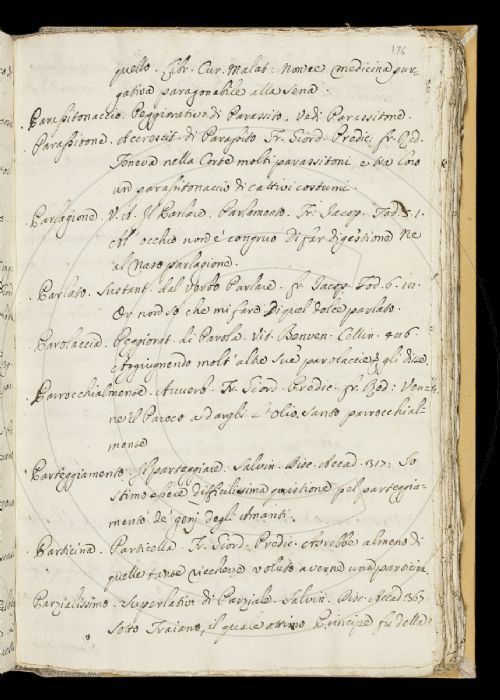 176
quello. Libr. Cur. Malat: Non v'è medicina pur-
gativa paragonabile alla sena.
Parassitonaccio. Peggiorativo di Parassito. Vedi Parassitone.
Parassitone. Accrescit. di Parassito Fr. Giord. Predic. fr. Red.
Teneva nella Corte molti parassitoni, e tra loro
un parassitonaccio di cattivi costumi.
Parlagione. V. A. Il Parlare, Parlamento. Fr. Jacop. Tod. 5. 1.
All' occhio non é congruo Di far digestione Ne
al Naso parlagione.
Parlato. Sustant. dal Verbo Parlare. fr. Jacop. Tod. 6.
Or non so che mi fare Di quel dolce parlato.
Parolaccia. Peggiorat. di Parola. Vit. Benven. Cellin. 406
Aggiugnendo molt' altre sue parolacce gli disse
Parrocchialmente. Avverb. Fr. Giord. Predic. fr. Red: Ven-
ne il Paroco a dargli L'olio santo parrocchial-
mente
Parteggiamento. Il parteggiare. Salvin. Disc. Accad. 317: Io
stimo essere difficilissima quistione pel parteggia-
mento de' genj degli Amanti.
Particina. Particella. Fr. Giord. Predic. Avrebbe almeno di
quelle tante ricchezze voluto averne una particina
Parzialissimo. Superlativo di Parziale. Salvin. Disc. Accad. 365.
Sotto Traiano, il quale ottimo Principe fu della